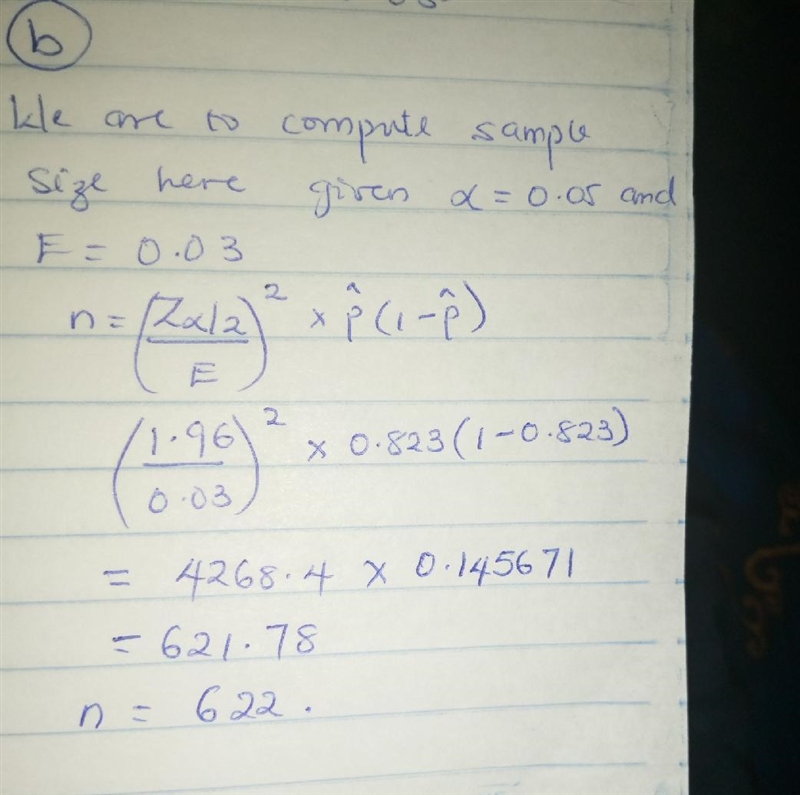 b
We are to compute sample
Size here given α = 0.05 and
E = 0.03
n = (Zα/2 / E)² × p̂(1-p̂)
(1.96 / 0.03)² × 0.823(1-0.823)
= 4268.4 × 0.145671
= 621.78
n = 622.